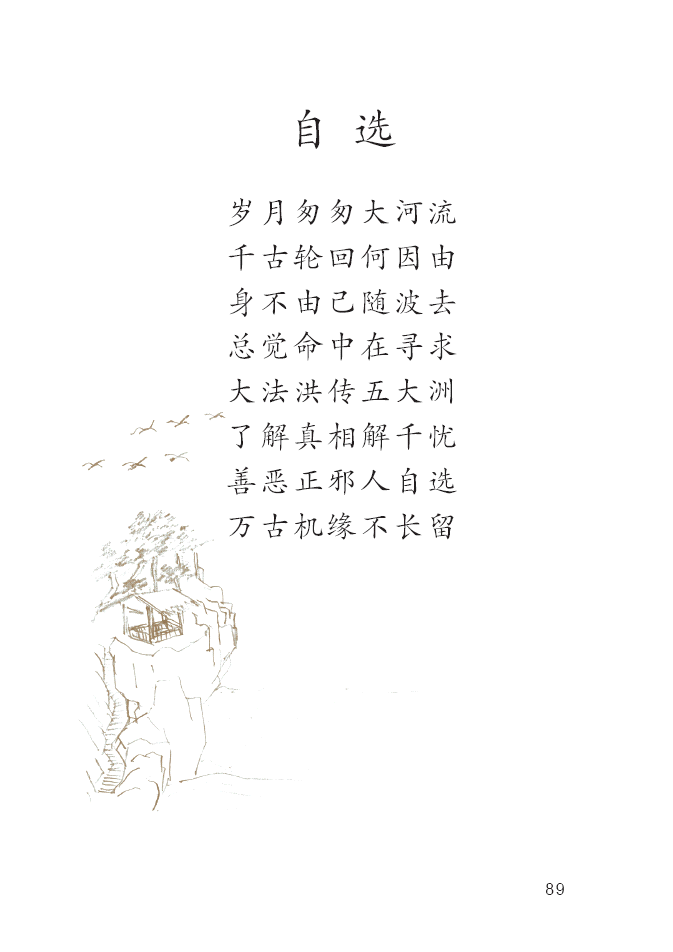 自选
岁月匆匆大河流
千古轮回何因由
身不由己随波去
总觉命中在寻求
大法洪传五大洲
了解真相解千忧
善恶正邪人自选
万古机缘不长留
89